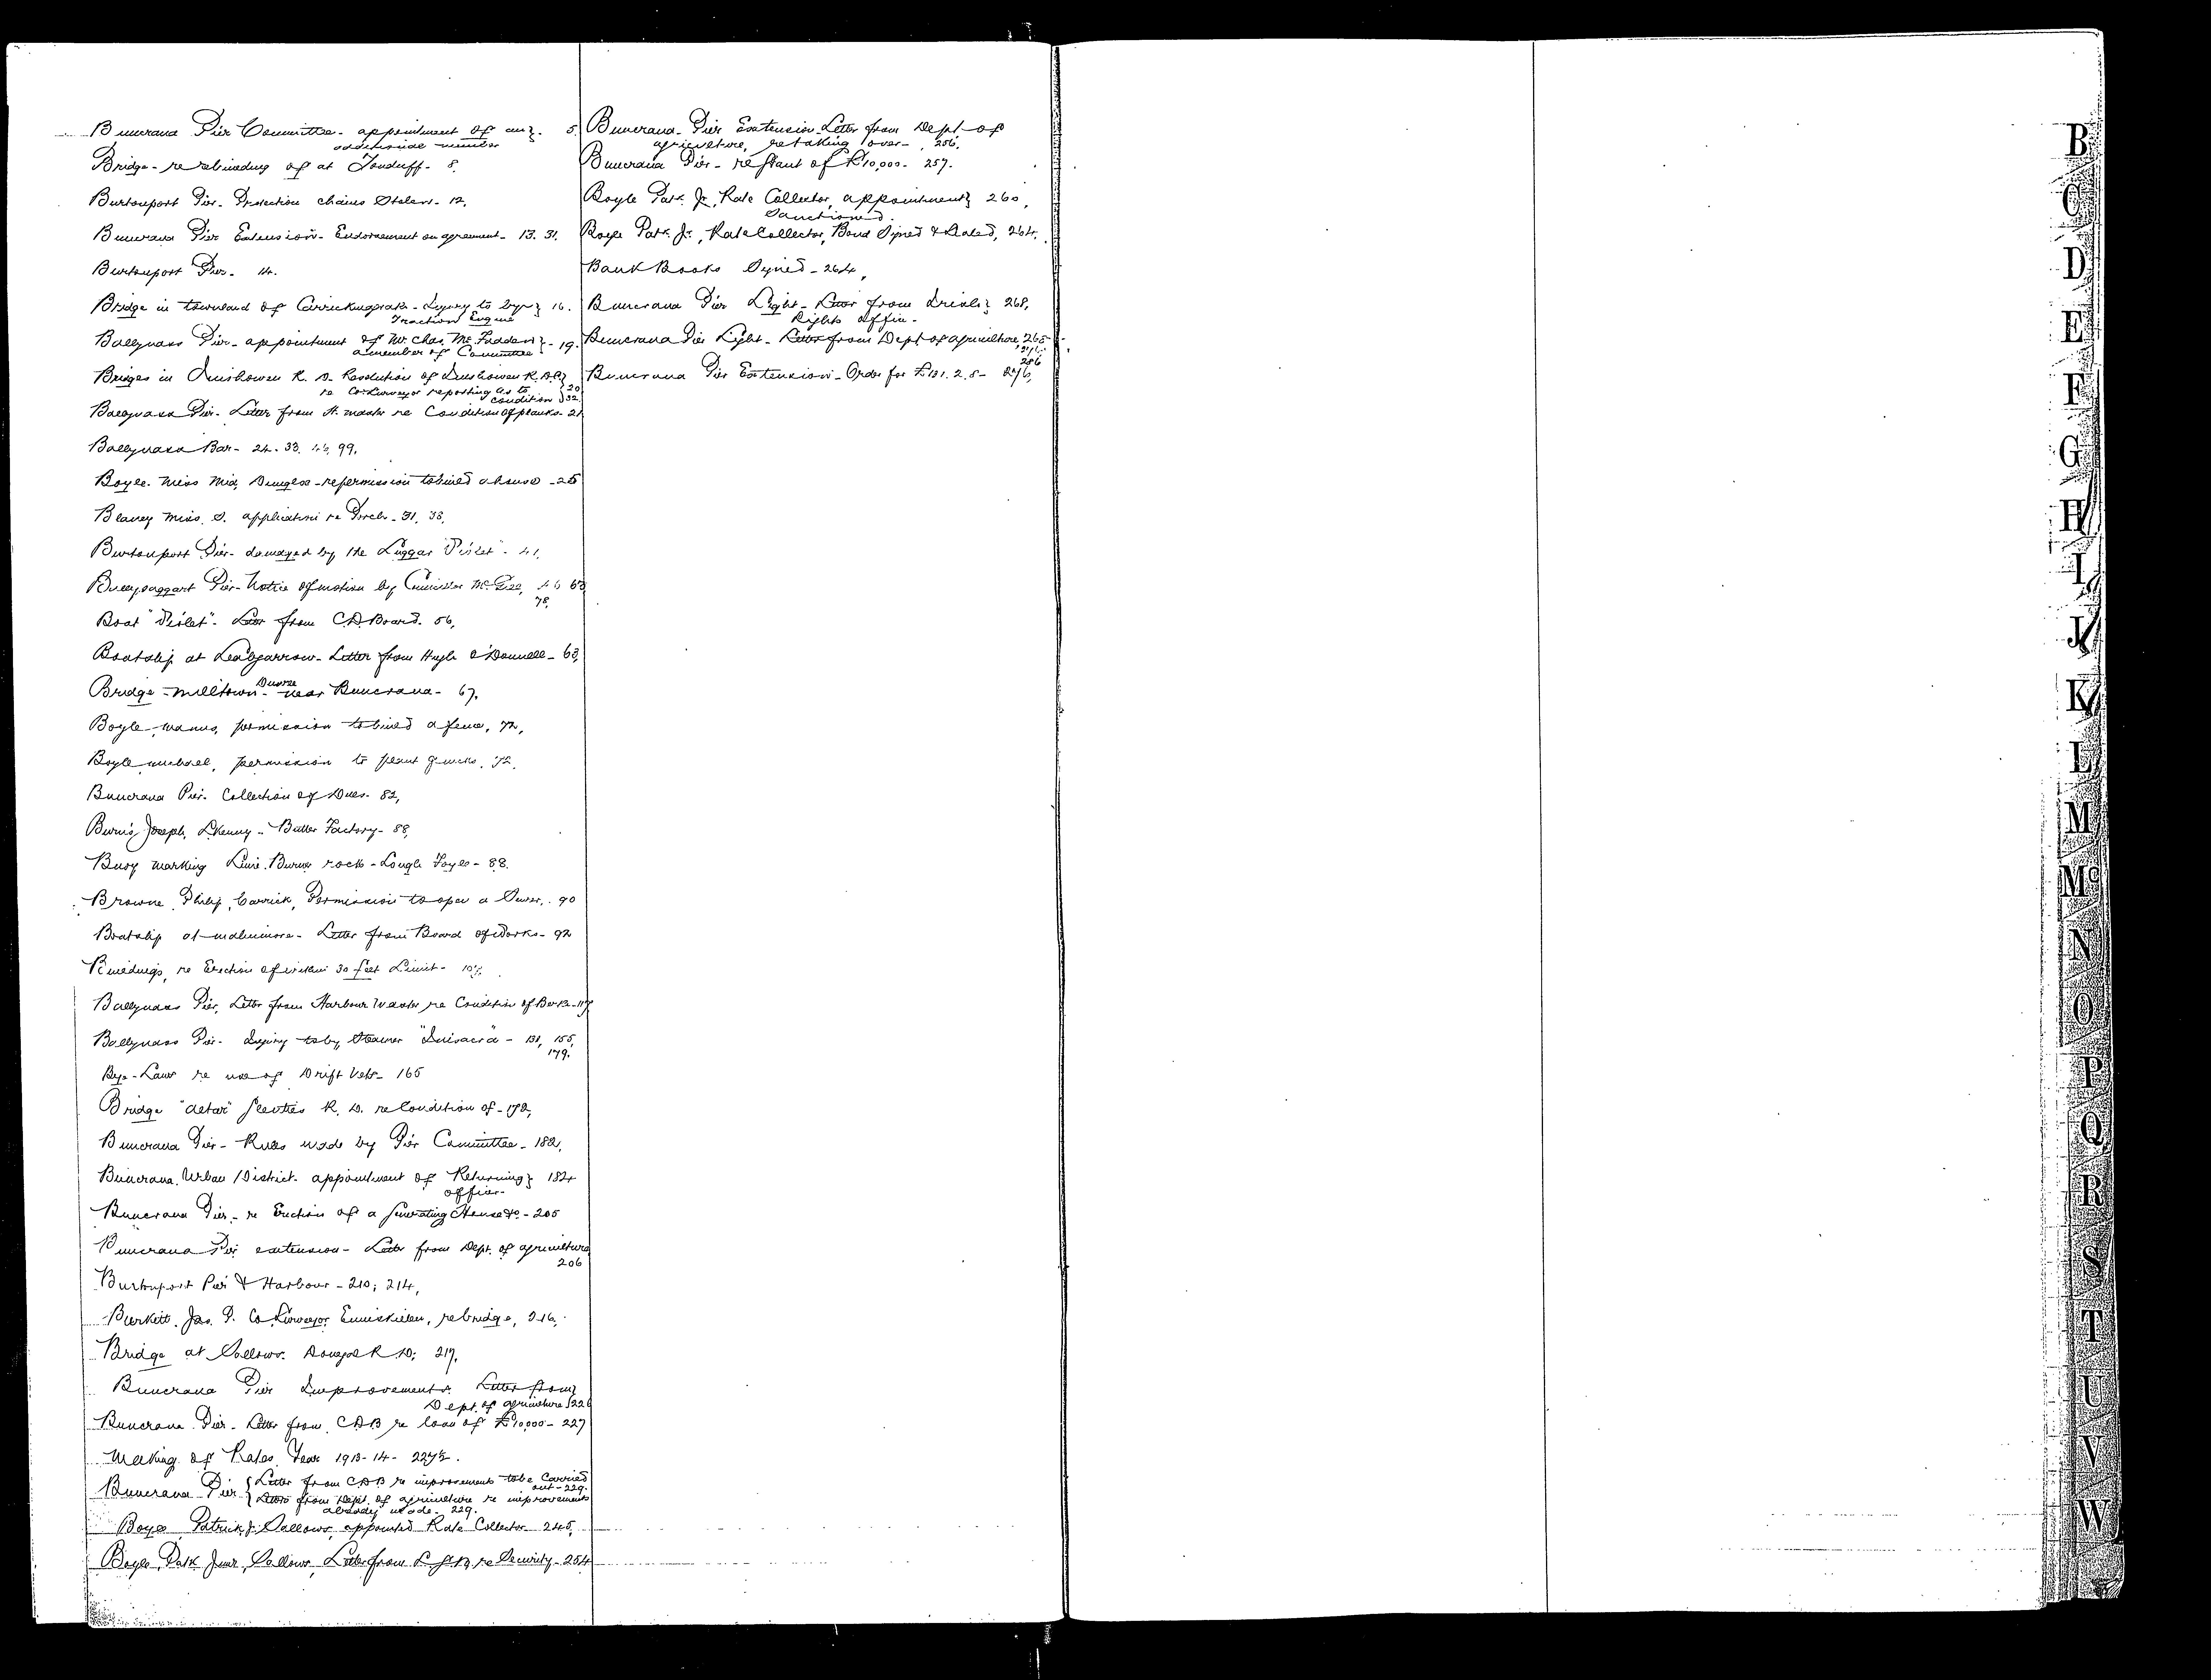 Buncrana Pier Committee - appointment of an } - 5.
additional member
Bridge - re rebuilding of at Tonduff - 8.
Burtonport Pier - Protection chains Stolen - 12.
Buncrana Pier Extension - Endorsement on agreement - 13. 31.
Burtonport Pier - 14.
Bridge in townland of - Injury to by } 16.
Traction Engine
Ballyness Pier - appointment of Mr. Chas. McFadden } - 19.
a member of Committee
Bridges in Inishowen R. D. Resolution of Inishowen R.D.C. }
re Co. Surveyor reporting as to } 20
condition } 32.
Ballyness Pier - Letter from H. master re Condition of planks - 21
Ballyness Bar - 24. 33. 99.
Boyle Miss Dungloe - re permission to build a house - 25
Blaney Miss. S. application re Porch - 31, 38,
Burtonport Pier - damaged by the Luggar "Violet" - 41.
Ballysaggart Pier - Notice of motion by Councillor 63
78,
Boat "Violet" - Letter from C.D. Board. 56,
Boatslip at Leabgarrow - Letter from Hugh O'Donnell - 63,
Bridge - Milltown - near Buncrana - 67.
Boyle, Manus, permission to build a fence, 72,
Boyle Michael, permission to plant quicks. 72.
Buncrana Pier. Collection of Dues - 82,
Burns Joseph, - Butter Factory - 88,
Buoy marking rock - Lough Foyle - 88.
Browne, Philip, Carrick, Permission to open a Sewer, 90
Boatslip at Malinmore - Letter from Board of Works - 92
Buildings, re Erection of within 30 feet Limit - 107.
Ballyness Pier, Letter from Harbour Master re Condition of - 117
Ballyness Pier - Injury to by Steamer - 131, 155,
179.
Bye-Laws re use of Drift Nets - 165
Bridge Glenties R. D. re Condition of - 172,
Buncrana Pier - Rules made by Pier Committee - 182,
Buncrana Urban District - appointment of Returning } 184
officer -
Buncrana Pier - re Erection of a House &c - 205
Buncrana Pier extension - Letter from Dept. of agriculture
206
Burtonport Pier & Harbour - 210; 214,
Burkitt, Jas. P. Co Surveyor Enniskillen, re bridge, 216.
Bridge at Sallows. Donegal R. D; 217,
Buncrana Pier Improvements. Letter from }
Dept. of agriculture } 226
Buncrana Pier - Letter from C.D.B re loan of £10,000 - 227
Making of Rates Year 1913-14 - 227½.
Buncrana Pier { Letter from C.D.B. re improvements to be Carried
out - 229.
{ Letter from Dept. of agriculture re improvements
already made - 229.
Boyle Patrick J. Sallows, appointed Rate Collector - 245,
Boyle, Patk Junr, Sallows, Letter from L.G.B, re Security - 254
Buncrana - Pier Extension - Letter from Dept of
agriculture, re taking over - 256.
Buncrana Pier - re Grant of £10,000 - 257.
Boyle Patk. Jr, Rate Collector, appointment } 260,
Sanctioned.
Boyle Patk. Jr, Rate Collector, Bond Signed & Sealed, 264.
Bank Books Signed - 264,
Buncrana Pier Light - Letter from Irish } 268,
Lights Office -
Buncrana Pier Light - Letter from Dept of agriculture, 268
286
Buncrana Pier Extension - Order for £131. 2. 8 - 276,
B
C
D
E
F
G
H
I
J
K
L
M
Mc
N
O
P
Q
R
S
T
U
V
W